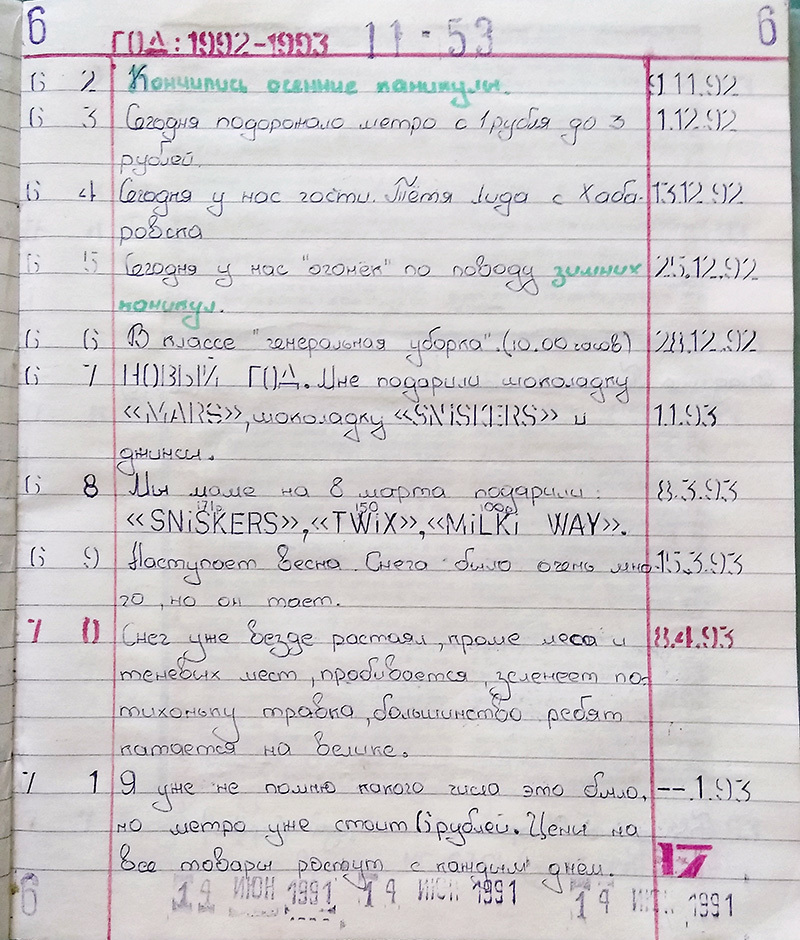 6 ГОД: 1992-1993 11-53 6
6 2 Кончились осенние каникулы. 9.11.92
6 3 Сегодня подорожало метро с 1 рубля до 3 1.12.92
рублей.
6 4 Сегодня у нас гости. Тётя Лида с Хаба- 13.12.92
ровска
6 5 Сегодня у нас "огонёк" по поводу зимних 25.12.92
каникул.
6 6 В классе "генеральная уборка". (10.00 часов) 28.12.92
6 7 НОВЫЙ ГОД. Мне подарили шоколадку
«MARS», шоколадку «SNiSKERS» и 1.1.93
джинсы.
6 8 Мы маме на 8 марта подарили: 8.3.93
171р 150 100р
«SNiSKERS», «TWiX», «MiLKi WAY».
6 9 Наступает весна. Снега было очень мно- 15.3.93
го, но он тает.
7 0 Снег уже везде растаял, кроме леса и 8.4.93
теневых мест, пробивается, зеленеет по-
тихоньку травка, большинство ребят
катается на велике.
7 1 Я уже не помню какого числа это было, --.1.93
но метро уже стоит 6 рублей. Цены на
все товары растут с каждым днём. 17
6 14 ИЮН 1991 14 ИЮН 1991 14 ИЮН 1991